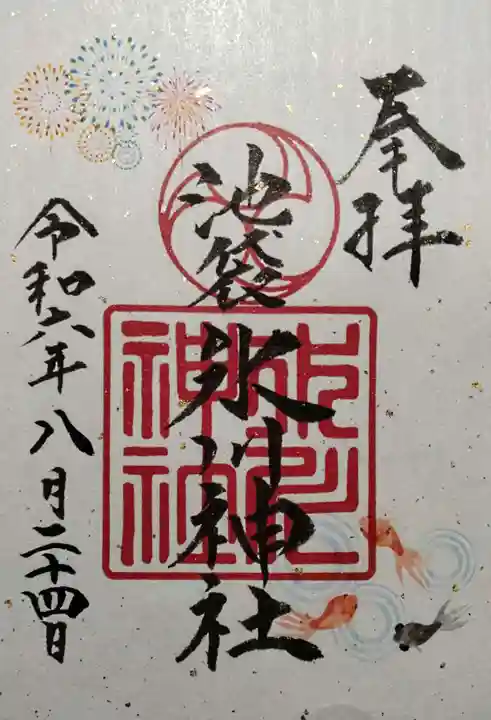 奉拝
池袋氷川神社
氷川神社
令和六年八月二十四日